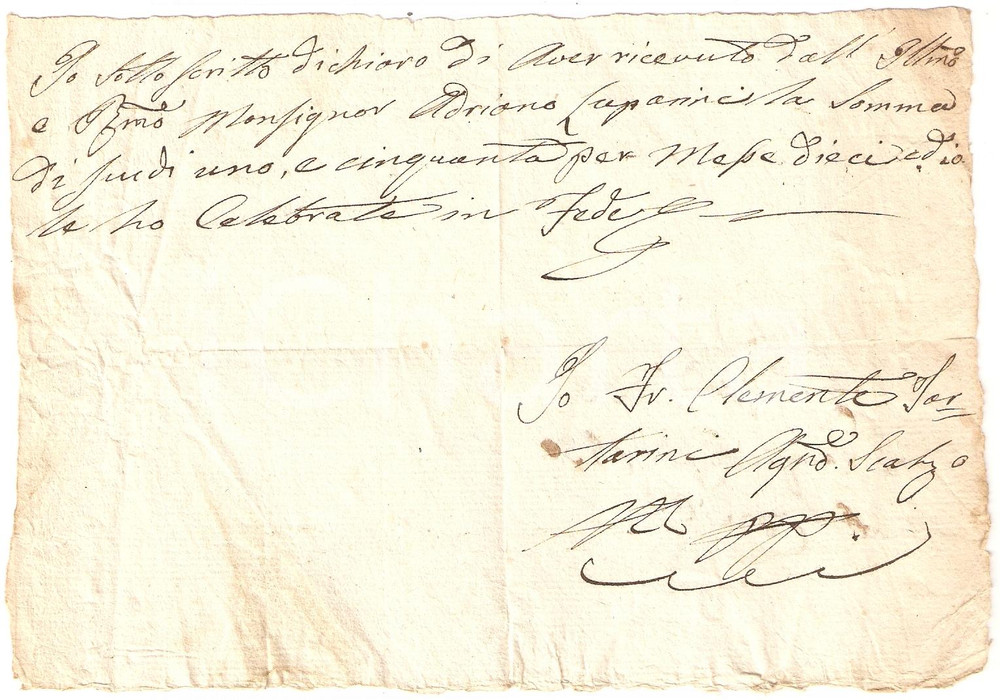 Io Sotto scritto dichiaro di Aver ricevuto dall' Illmo
e Rmo Monsignor Adriano Luparini la Somma
di scudi uno, e cinquanta per Messe dieci ed io
le ho Celebrate in Fede
Io Fr. Clemente Tar-
tarini Agnō. Scalzo